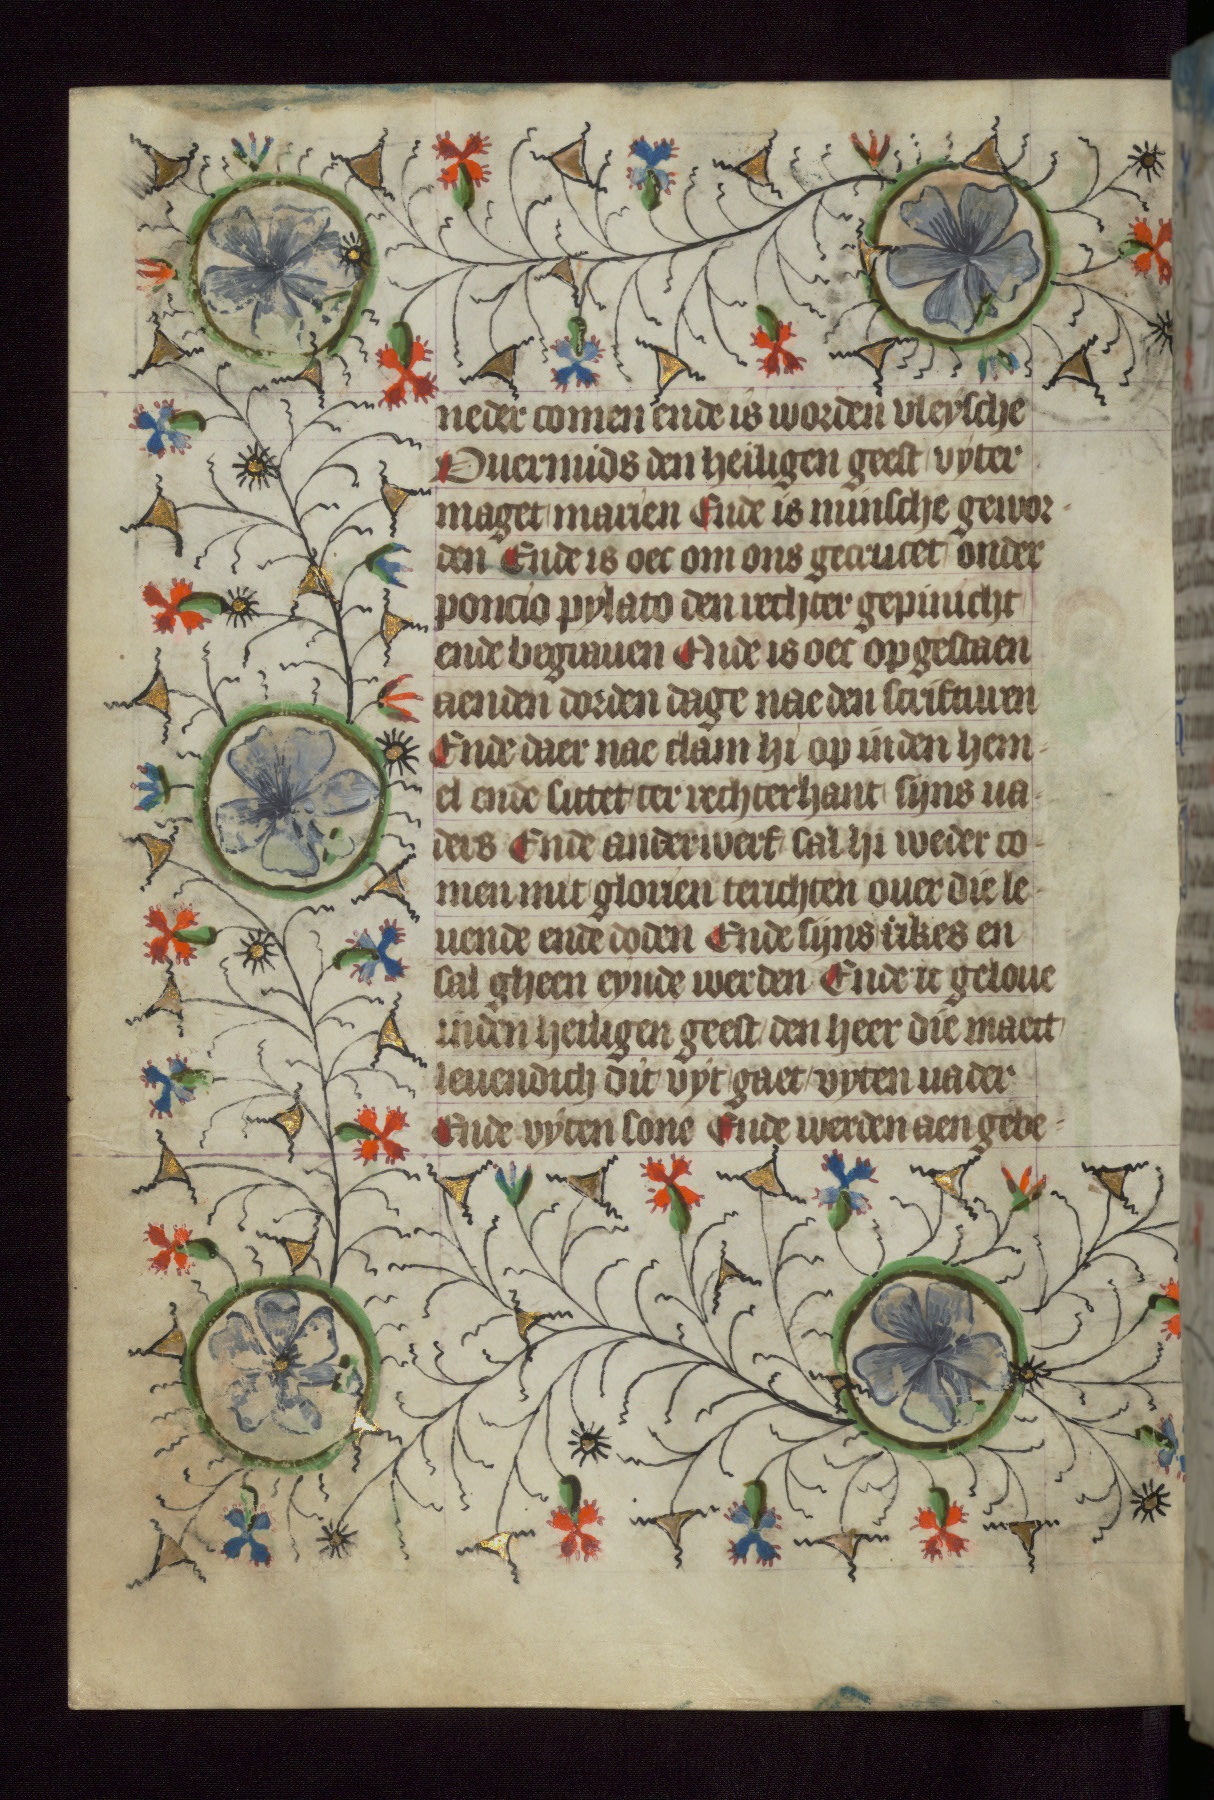 neder comen ende is worden vleysche
Ouermids den heiligen geest vyter
maget marien Ende is minsche gewor-
den Ende is oec om ons gecrucet onder
poncio pylato den rechter gepinicht
ende begrauen Ende is oec opgestaen
aenden dorden dage nae den scrifturen
Ende daer nae clam hi op inden hem-
el ende sittet ter rechterhant sijns va-
ders Ende anderwerf sal hi weder co-
men mit glorien terichten ouer die le-
uende ende doden Ende sijns rikes en
sal gheen eynde werden Ende ic geloue
inden heiligen geest den heer die maect
leuendich dit vyt gaet vyten vader
Ende vyten sone Ende werden aen gebe-